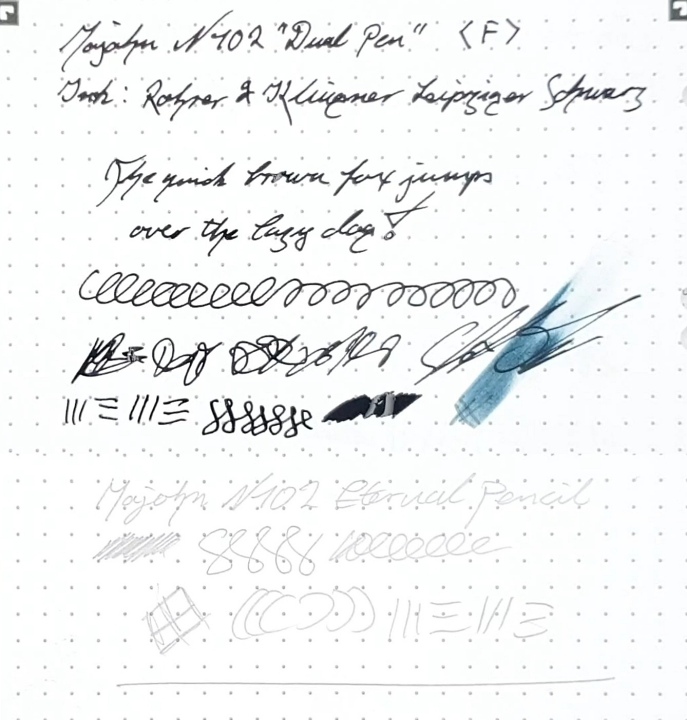 Majohn N102 "Dual Pen" <F>
Ink: Rohrer & Klingner Leipziger Schwarz
The quick brown fox jumps
over the lazy dog!
Majohn N102 Eternal Pencil